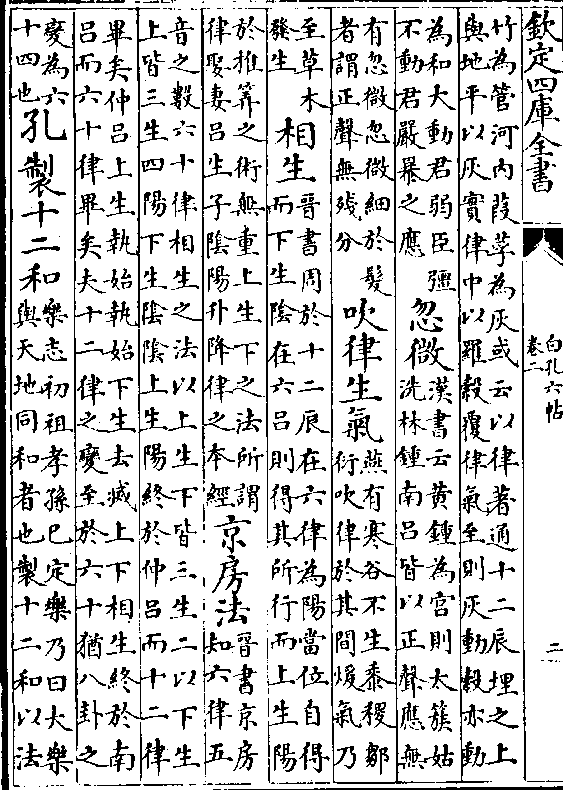 欽定四庫全書
白孔六帖
卷二
二
竹為管河内葭莩為灰或云以律著通十二辰埋之上
與地平以灰實律中以羅縠覆律氣至則灰動縠亦動
為和大動君弱臣彊
不動君嚴暴之應
忽微
漢書云黄鍾為宮則太簇姑
洗林鍾南吕皆以正聲應無
有忽微忽微細於髮
者謂正聲無殘分
吹律生氣
燕有寒谷不生黍稷鄒
衍吹律於其間煖氣乃
至草木
發生
相生
晉書周於十二辰在六律為陽當位自得
而下生陰在六吕則得其所行而上生陽
於推筭之術無重上生下之法所謂
律娶妻吕生子陰陽升降律之本經
京房法
晉書京房
知六律五
音之數六十律相生之法以上生下皆三生二以下生
上皆三生四陽下生陰陰上生陽終於仲吕而十二律
畢矣仲吕上生執始執始下生去滅上下相生終於南
吕而六十律畢矣夫十二律之變至於六十猶八卦之
變為六
十四也
孔製十二和
樂志初祖孝孫已定樂乃曰大樂
與天地同和者也製十二和以法